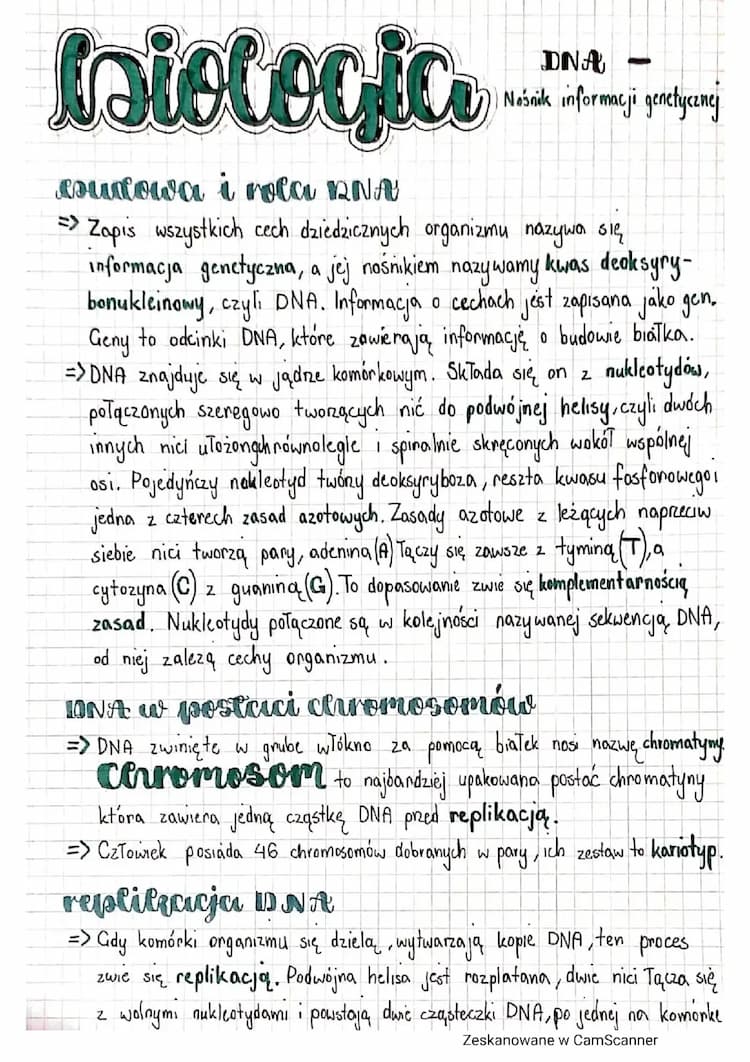 biologia
DNA –
Nośnik informacji genetycznej
budowa i rola DNA
=> Zapis wszystkich cech dziedzicznych organizmu nazywa się
informacja genetyczna, a jej nośnikiem nazywamy kwas deoksyry-
bonukleinowy, czyli DNA. Informacja o cechach jest zapisana jako gen.
Geny to odcinki DNA, które zawierają informację o budowie białka.
=> DNA znajduje się w jądrze komórkowym. Składa się on z nukleotydów,
połączonych szeregowo tworzących nić do podwójnej helisy, czyli dwóch
innych nici ułożonych równolegle i spiralnie skręconych wokół wspólnej
osi. Pojedyńczy nukleotyd tworzy deoksyryboza, reszta kwasu fosforowego i
jedna z czterech zasad azotowych. Zasady azotowe z leżących naprzeciw
siebie nici tworzą pary, adenina (A) łączy się zawsze z tyminą (T), a
cytozyna (C) z guaniną (G). To dopasowanie zwie się komplementarnością
zasad. Nukleotydy połączone są w kolejności nazywanej sekwencją DNA,
od niej zależą cechy organizmu.
DNA w postaci chromosomów
=> DNA zwinięte w grube włókno za pomocą białek nosi nazwę chromatyny.
Chromosom to najbardziej upakowana postać chromatyny
która zawiera jedną cząstkę DNA przed replikacją.
=> Człowiek posiada 46 chromosomów dobranych w pary, ich zestaw to kariotyp.
replikacja DNA
=> Gdy komórki organizmu się dzielą, wytwarzają kopie DNA, ten proces
zwie się replikacją. Podwójna helisa jest rozplatana, dwie nici łączą się
z wolnymi nukleotydami i powstają dwie cząsteczki DNA, po jednej na komórkę
Zeskanowane w CamScanner